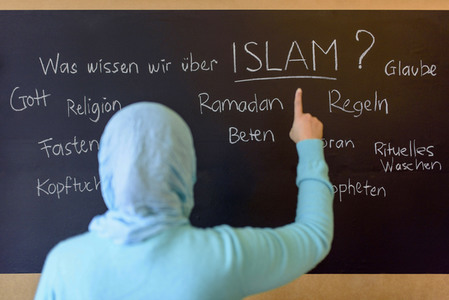 Was wissen wir über ISLAM?
Glaube
Gott
Religion
Ramadan
Regeln
Fasten
Beten
Rituelles
Waschen
Kopftuch